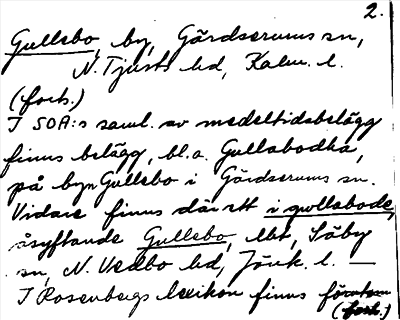 2.
Gullebo, by, Gärdserums sn,
N. Tjusts hd, Kalm. l.
(forts.)
I SOA:s saml. av medeltidsbelägg
finns belägg, bl.a. Gullabodha,
på byn Gullebo i Gärdserums sn.
Vidare finns där ett i gwllebode,
åsyftande Gullebo, lht, Säby
sn, N. Vedbo hd, Jönk. l. —
I Rosenbergs lexikon finns förutom
(forts.)